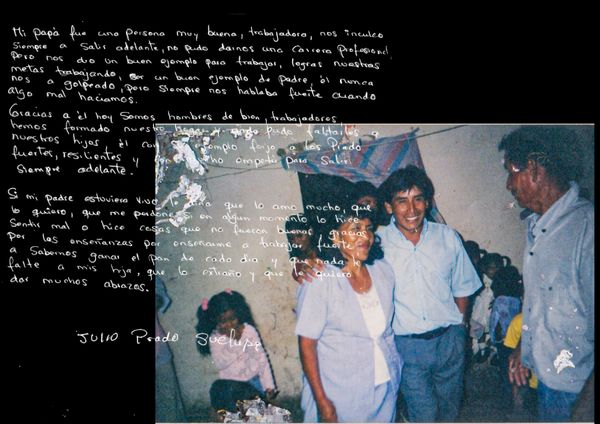 Mi papá fue una persona muy buena, trabajadora, nos inculco
siempre a Salir adelante, no pudo darnos una carrera Profesional
Pero nos dio un buen ejemplo para trabajar, lograr nuestras
metas trabajando, un buen ejemplo de padre, él nunca
nos a golpeado, pero siempre nos hablaba fuerte cuando
algo mal haciamos.
Gracias a él hoy Somos hombres de bien, trabajadores
hemos formado nuestro hogar y pudo faltarles a
nuestros hijos él con ejemplo forjo a los Prado
fuertes, resilientes y con para Salir
siempre adelante.
Si mi padre estuviera vivo le que lo amo mucho, que
lo quiero, que me perdone si en algun momento lo hice
Sentir mal o hice cosas que no fueron buenas, gracias
por las enseñanzas por enseñarme a trabajar fuerte
a Sabernos ganar el pan de cada dia y que nada le
falte a mis hijo, que lo extraño y que le quiero
dar muchos abrazos.
JULIO Prado